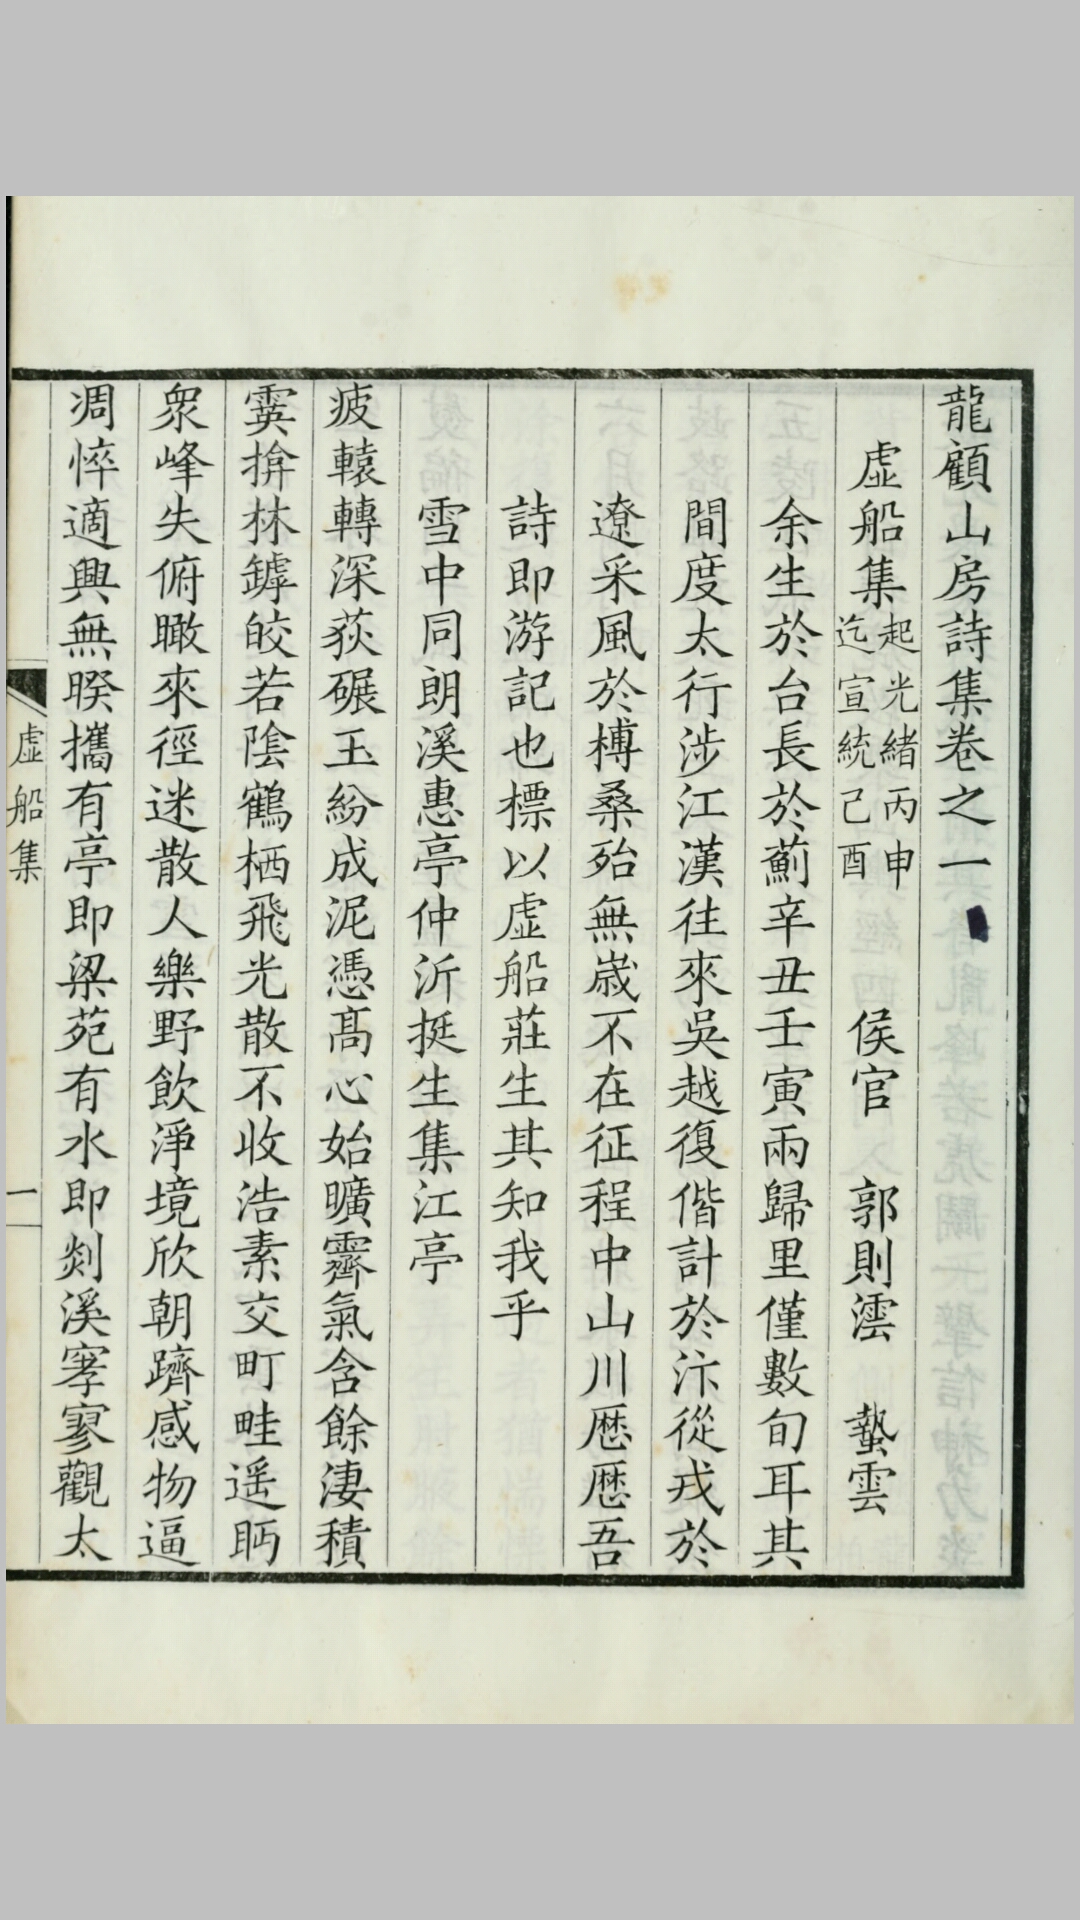 龍顧山房詩集卷之一
虛船集 起光緒丙申 迄宣統己酉 侯官 郭則澐 蟄雲
余生於台長於薊辛丑壬寅兩歸里僅數旬耳其
間度太行涉江漢往來吳越復偕計於汴從戎於
遼采風於榑桑殆無歲不在征程中山川歷歷吾
詩即游記也標以虛船莊生其知我乎
雪中同朗溪惠亭仲沂挺生集江亭
疲轅轉深荻碾玉紛成泥憑高心始曠霽氣含餘淒積
霙揜林罅皎若陰鶴栖飛光散不收浩素交町畦遥眄
衆峰失俯瞰來徑迷散人樂野飲淨境欣朝躋感物逼
凋悴適興無暌攜有亭即梁苑有水即剡溪寥寥觀太
虛船集
一